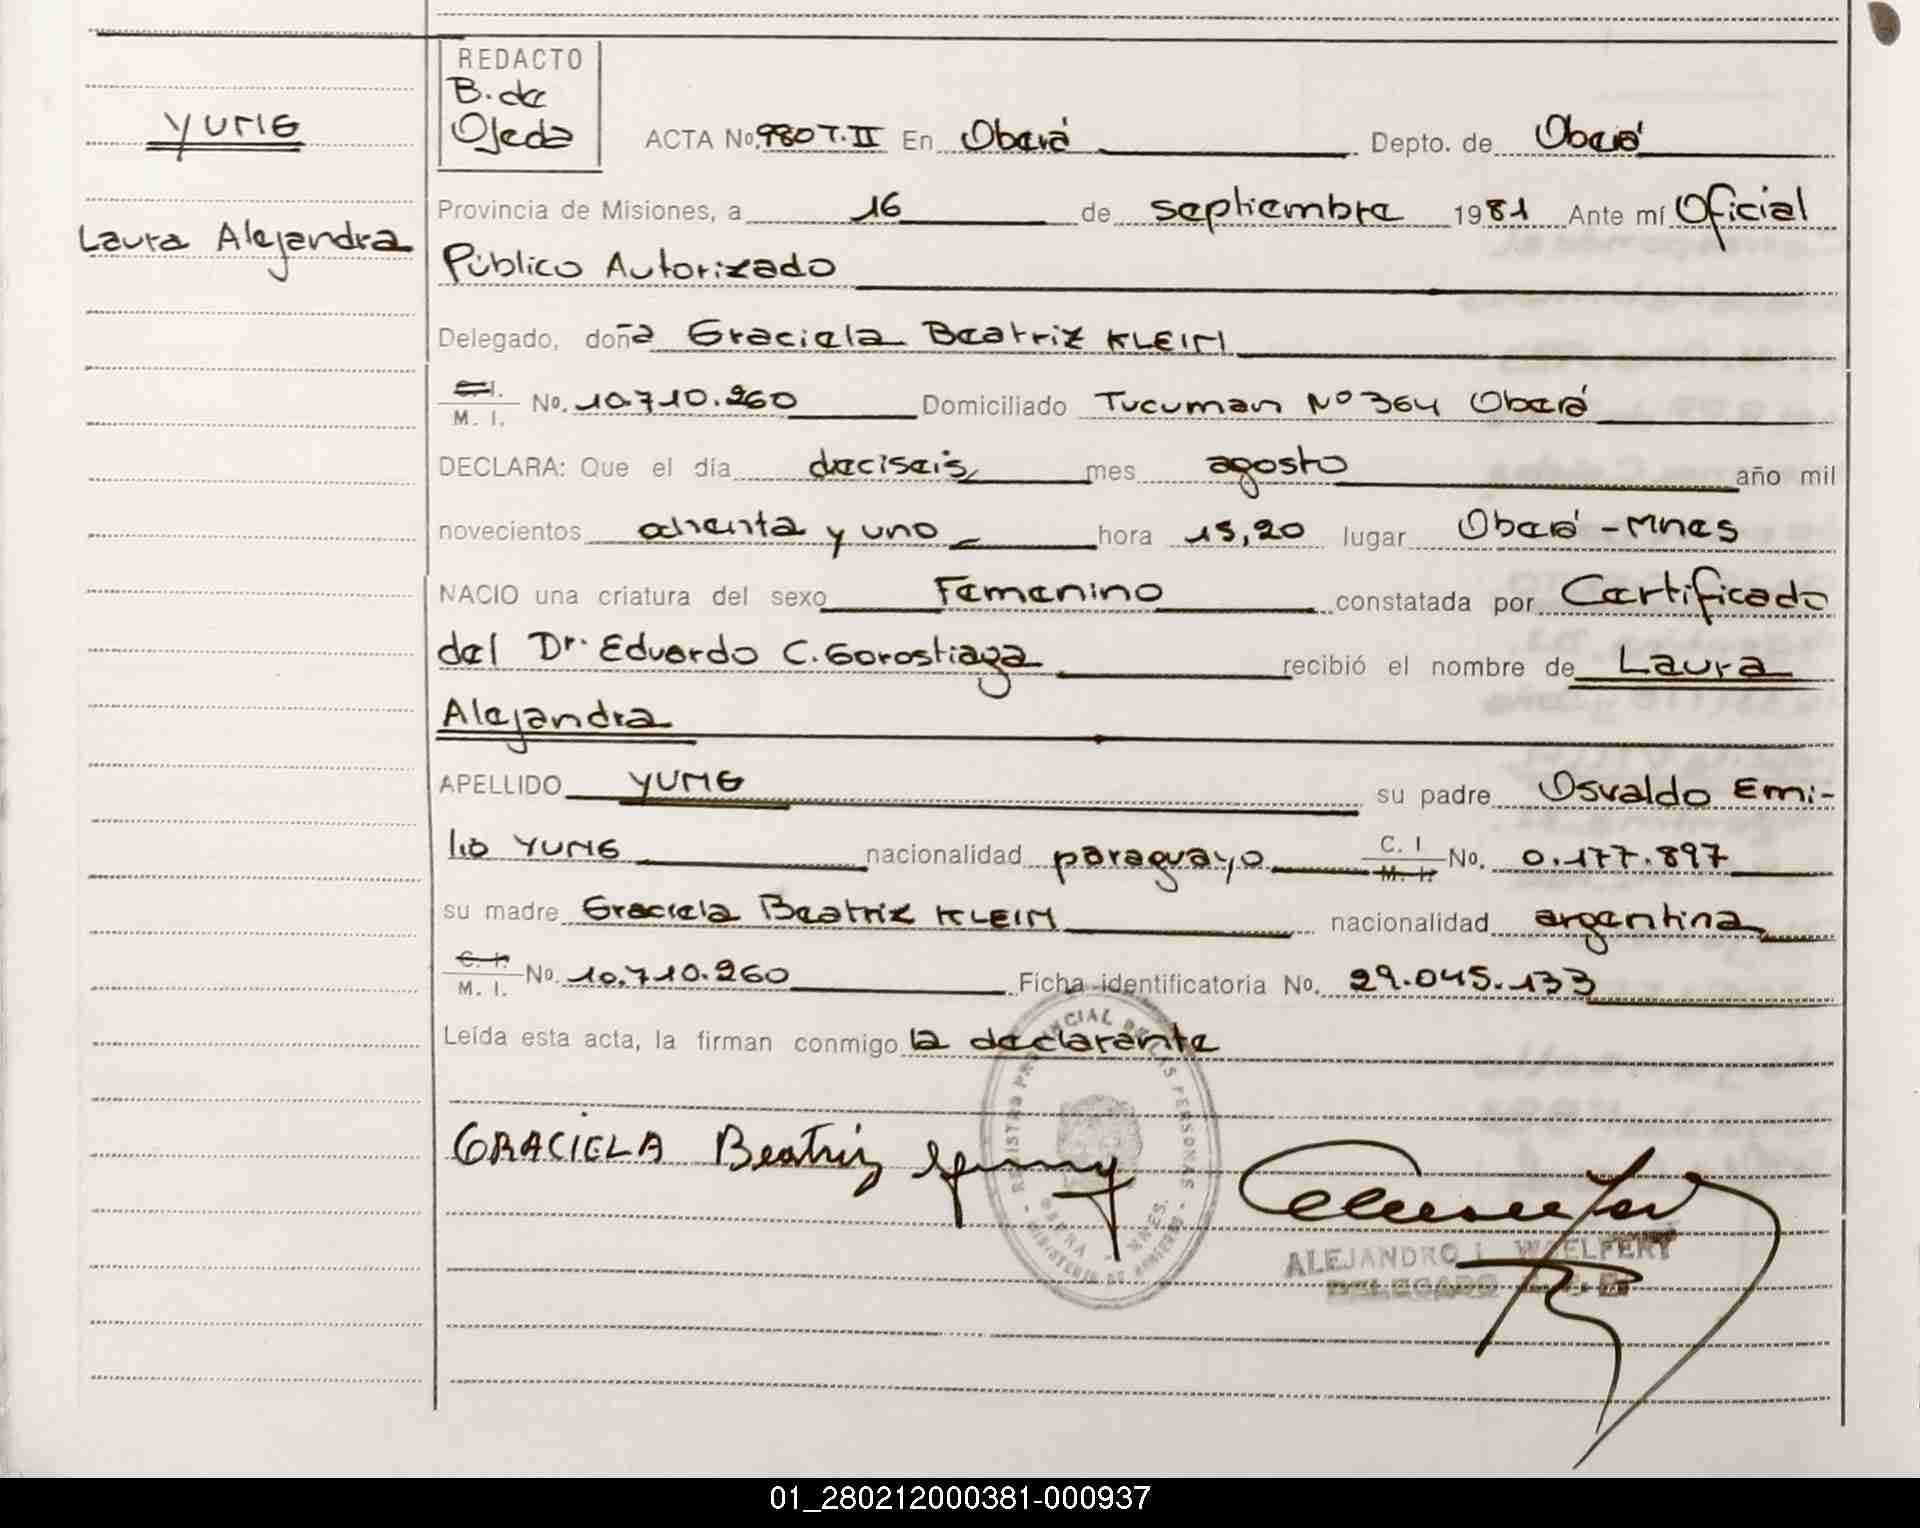 REDACTO
B. de
Ojeda
YUNG
Laura Alejandra
ACTA No. 980 T. II En Oberá Depto. de Oberá
Provincia de Misiones, a 16 de septiembre 1981 Ante mí Oficial
Público Autorizado
Delegado, doña Graciela Beatriz KLEIN
C. I. M. I. No. 10.710.260 Domiciliado Tucuman Nº 364 Oberá
DECLARA: Que el día dieciseis mes agosto año mil
novecientos ochenta y uno hora 15,20 lugar Oberá - Mnes
NACIO una criatura del sexo Femenino constatada por Certificado
del Dr. Eduardo C. Gorostiaga recibió el nombre de Laura
Alejandra
APELLIDO YUNG su padre Osvaldo Emi-
lio YUNG nacionalidad paraguayo C. I M. I. No. 0.177.897
su madre Graciela Beatriz KLEIN nacionalidad argentina
C. I. M. I. No. 10.710.260 Ficha identificatoria No. 29.045.133
Leída esta acta, la firman conmigo la declarante
GRACIELA Beatriz
REGISTRO PROVINCIAL DE LAS PERSONAS
OBERA - MNES.
MINISTERIO DE GOBIERNO
ALEJANDRO L. WOELFERT
DELEGADO
01_280212000381-000937